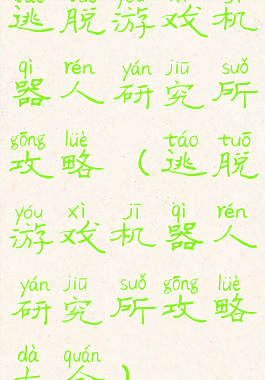 逃脱游戏机
qì rén yán jiū suǒ
器人研究所
gōng lüè táo tuō
攻略（逃脱
yóu xì jī qì rén
游戏机器人
yán jiū suǒ gōng lüè
研究所攻略
dà quán
大全）